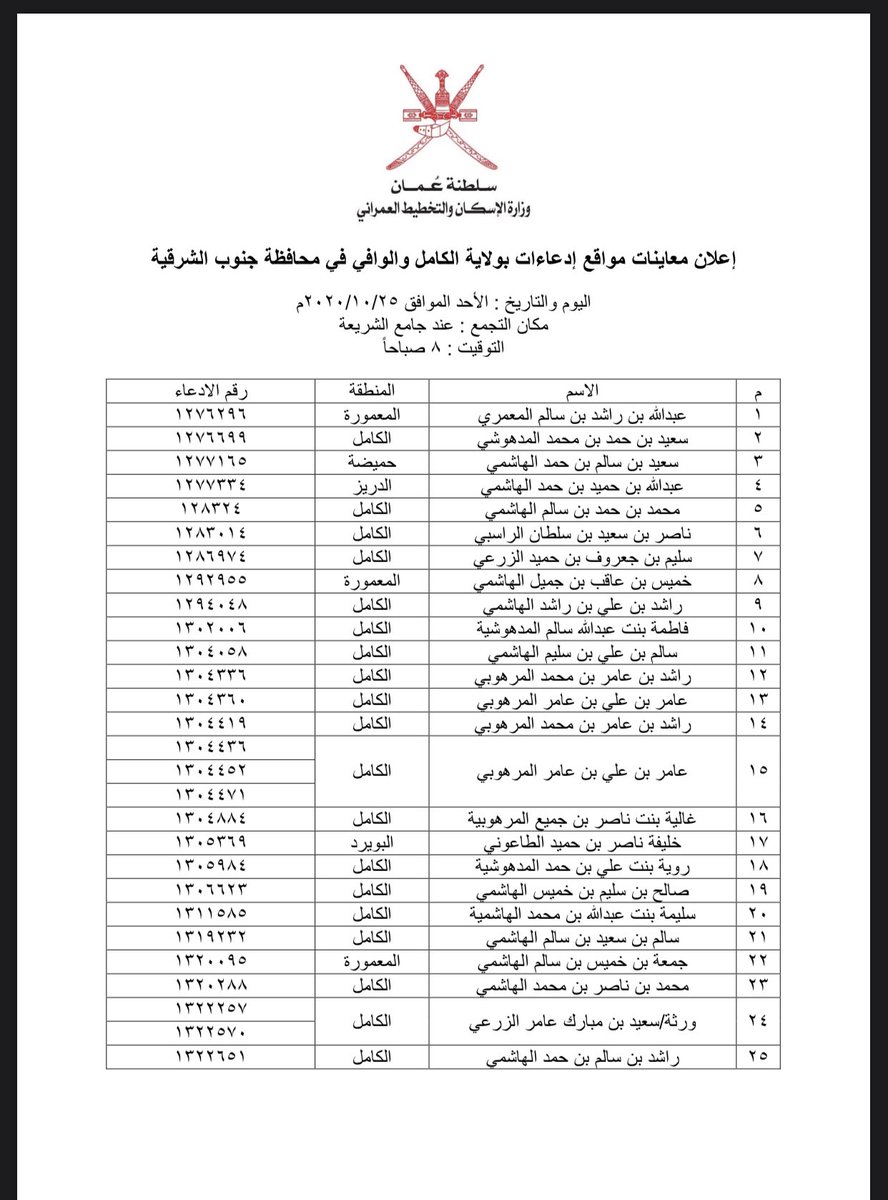 سلطنة عُمان
وزارة الإسكان والتخطيط العمراني
إعلان معاينات مواقع إدعاءات بولاية الكامل والوافي في محافظة جنوب الشرقية
اليوم والتاريخ : الأحد الموافق ٢٠٢٠/١٠/٢٥م
مكان التجمع : عند جامع الشريعة
التوقيت : ٨ صباحاً
م الاسم المنطقة رقم الادعاء
١ عبدالله بن راشد بن سالم المعمري المعمورة ١٢٧٦٢٩٦
٢ سعيد بن حمد بن محمد المدهوشي الكامل ١٢٧٦٦٩٩
٣ سعيد بن سالم بن حمد الهاشمي حميضة ١٢٧٧١٦٥
٤ عبدالله بن حميد بن حمد الهاشمي الدريز ١٢٧٧٣٣٤
٥ محمد بن حمد بن سالم الهاشمي الكامل ١٢٨٣٢٤
٦ ناصر بن سعيد بن سلطان الراسبي الكامل ١٢٨٣٠١٤
٧ سليم بن جعروف بن حميد الزرعي الكامل ١٢٨٦٩٧٤
٨ خميس بن عاقب بن جميل الهاشمي المعمورة ١٢٩٢٩٥٥
٩ راشد بن علي بن راشد الهاشمي الكامل ١٢٩٤٠٤٨
١٠ فاطمة بنت عبدالله سالم المدهوشية الكامل ١٣٠٢٠٠٦
١١ سالم بن علي بن سليم الهاشمي الكامل ١٣٠٤٠٥٨
١٢ راشد بن عامر بن محمد المرهوبي الكامل ١٣٠٤٣٣٦
١٣ عامر بن علي بن عامر المرهوبي الكامل ١٣٠٤٣٦٠
١٤ راشد بن عامر بن محمد المرهوبي الكامل ١٣٠٤٤١٩
١٣٠٤٤٣٦
١٥ عامر بن علي بن عامر المرهوبي الكامل ١٣٠٤٤٥٢
١٣٠٤٤٧١
١٦ غالية بنت ناصر بن جميع المرهوبية الكامل ١٣٠٤٨٨٤
١٧ خليفة ناصر بن حميد الطاعوني البويرد ١٣٠٥٣٦٩
١٨ روية بنت علي بن حمد المدهوشية الكامل ١٣٠٥٩٨٤
١٩ صالح بن سليم بن خميس الهاشمي الكامل ١٣٠٦٦٢٣
٢٠ سليمة بنت عبدالله بن محمد الهاشمية الكامل ١٣١١٥٨٥
٢١ سالم بن سعيد بن سالم الهاشمي الكامل ١٣١٩٢٣٢
٢٢ جمعة بن خميس بن سالم الهاشمي المعمورة ١٣٢٠٠٩٥
٢٣ محمد بن ناصر بن محمد الهاشمي الكامل ١٣٢٠٢٨٨
١٣٢٢٢٥٧
٢٤ ورثة/سعيد بن مبارك عامر الزرعي الكامل
١٣٢٢٥٧٠
٢٥ راشد بن سالم بن حمد الهاشمي الكامل ١٣٢٢٦٥١